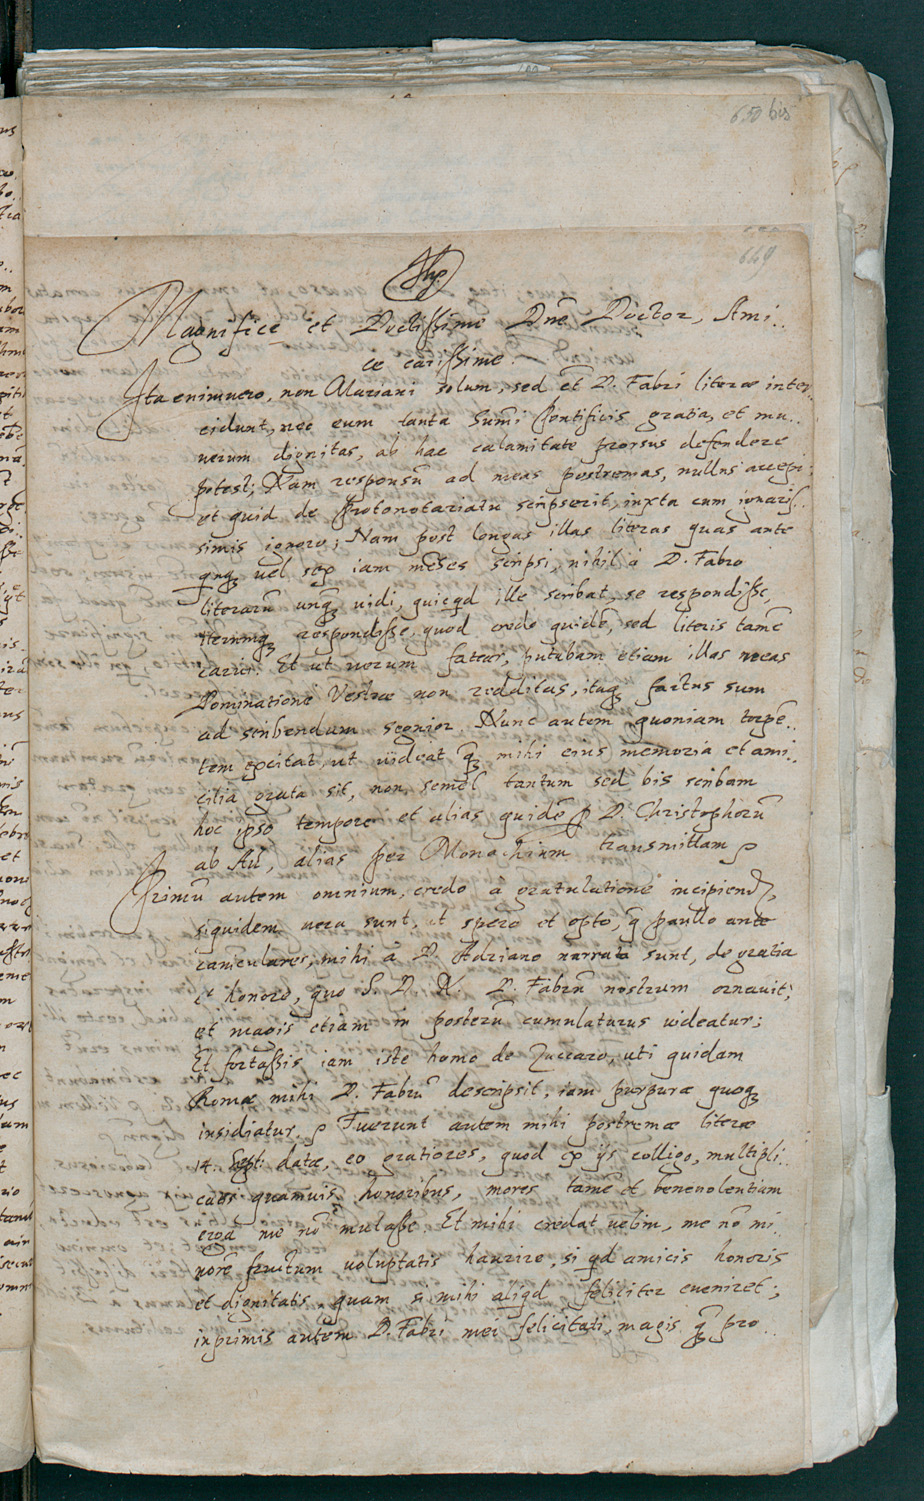 650 bis
649
Magnifice et Doctissime Dnē Doctor, Ami..
ce carissime.
Ita enimuero, non Mariani solum, sed et D. Fabri literæ inter
cidunt, nec eum tanta Sum̄i Pontificis gratia, et mu..
nerum dignitas, ab hac calamitate prorsus defendere
potest; Nam responsū ad meas postremas, nullus accepi
et quid de Protonotariatu scripserit, iuxta cum ignaris..
simis ignoro; Nam post longas illas literas quas ante
qnq3 uel sex iam mēses scripsi, nihil à D. Fabro
literarū unq3 uidi, quicqd ille scribat, se respondisse,
iterumq3 respondisse, quod credo quidē, sed literis tamē
carui. Et ut uerum fatear, putabam etiam illas meas
Dominationi Vestræ non redditas, itaq3 factus sum
ad scribendum segnior. Nunc autem quoniam torpē..
tem excitat, ut uideat q3 mihi eius memoria et ami..
cilia grata sit, non semel tantum sed bis scribam
hoc ipso tempore et alias quidē p D. Christophorū
ab Au, alias per Monachium transmittam
Primū autem omnium, credo à gratulatione incipiend,
siquidem uera sunt, ut spero et opto, q paullo ante
caniculares, mihi à D. Adriano narrata sunt, de gratia
et honore, quo S. D. N. D. Fabrū nostrum ornauit;
et magis etiam in posterū cumulaturus uideatur;
Et fortassis iam iste homo de Zuccaro, uti quidam
Romæ mihi D. Fabrū descripsit, iam purpuræ quoq3
insidiatur. Fuerunt autem mihi postremæ literæ
14 Sept: datæ, eo gratiores, quod ex ijs colligo, multipli..
catis quamuis honoribus, mores tamē et beneuolentiam
erga me nō mutasse. Et mihi credat uelim, me nō mi
norē fructum uoluptatis haurire, si qd amicis honoris
et dignitatis, quam si mihi aliqd feliciter eueniret;
inprimis autem D. Fabri mei felicitati, magis q3 pro..